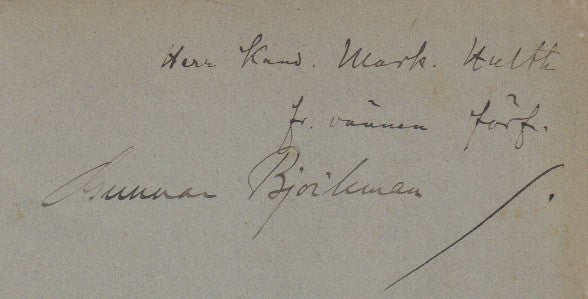 Herr Kand. Mark. Hulth
fr. vännen förf.
Gunnar Björkman